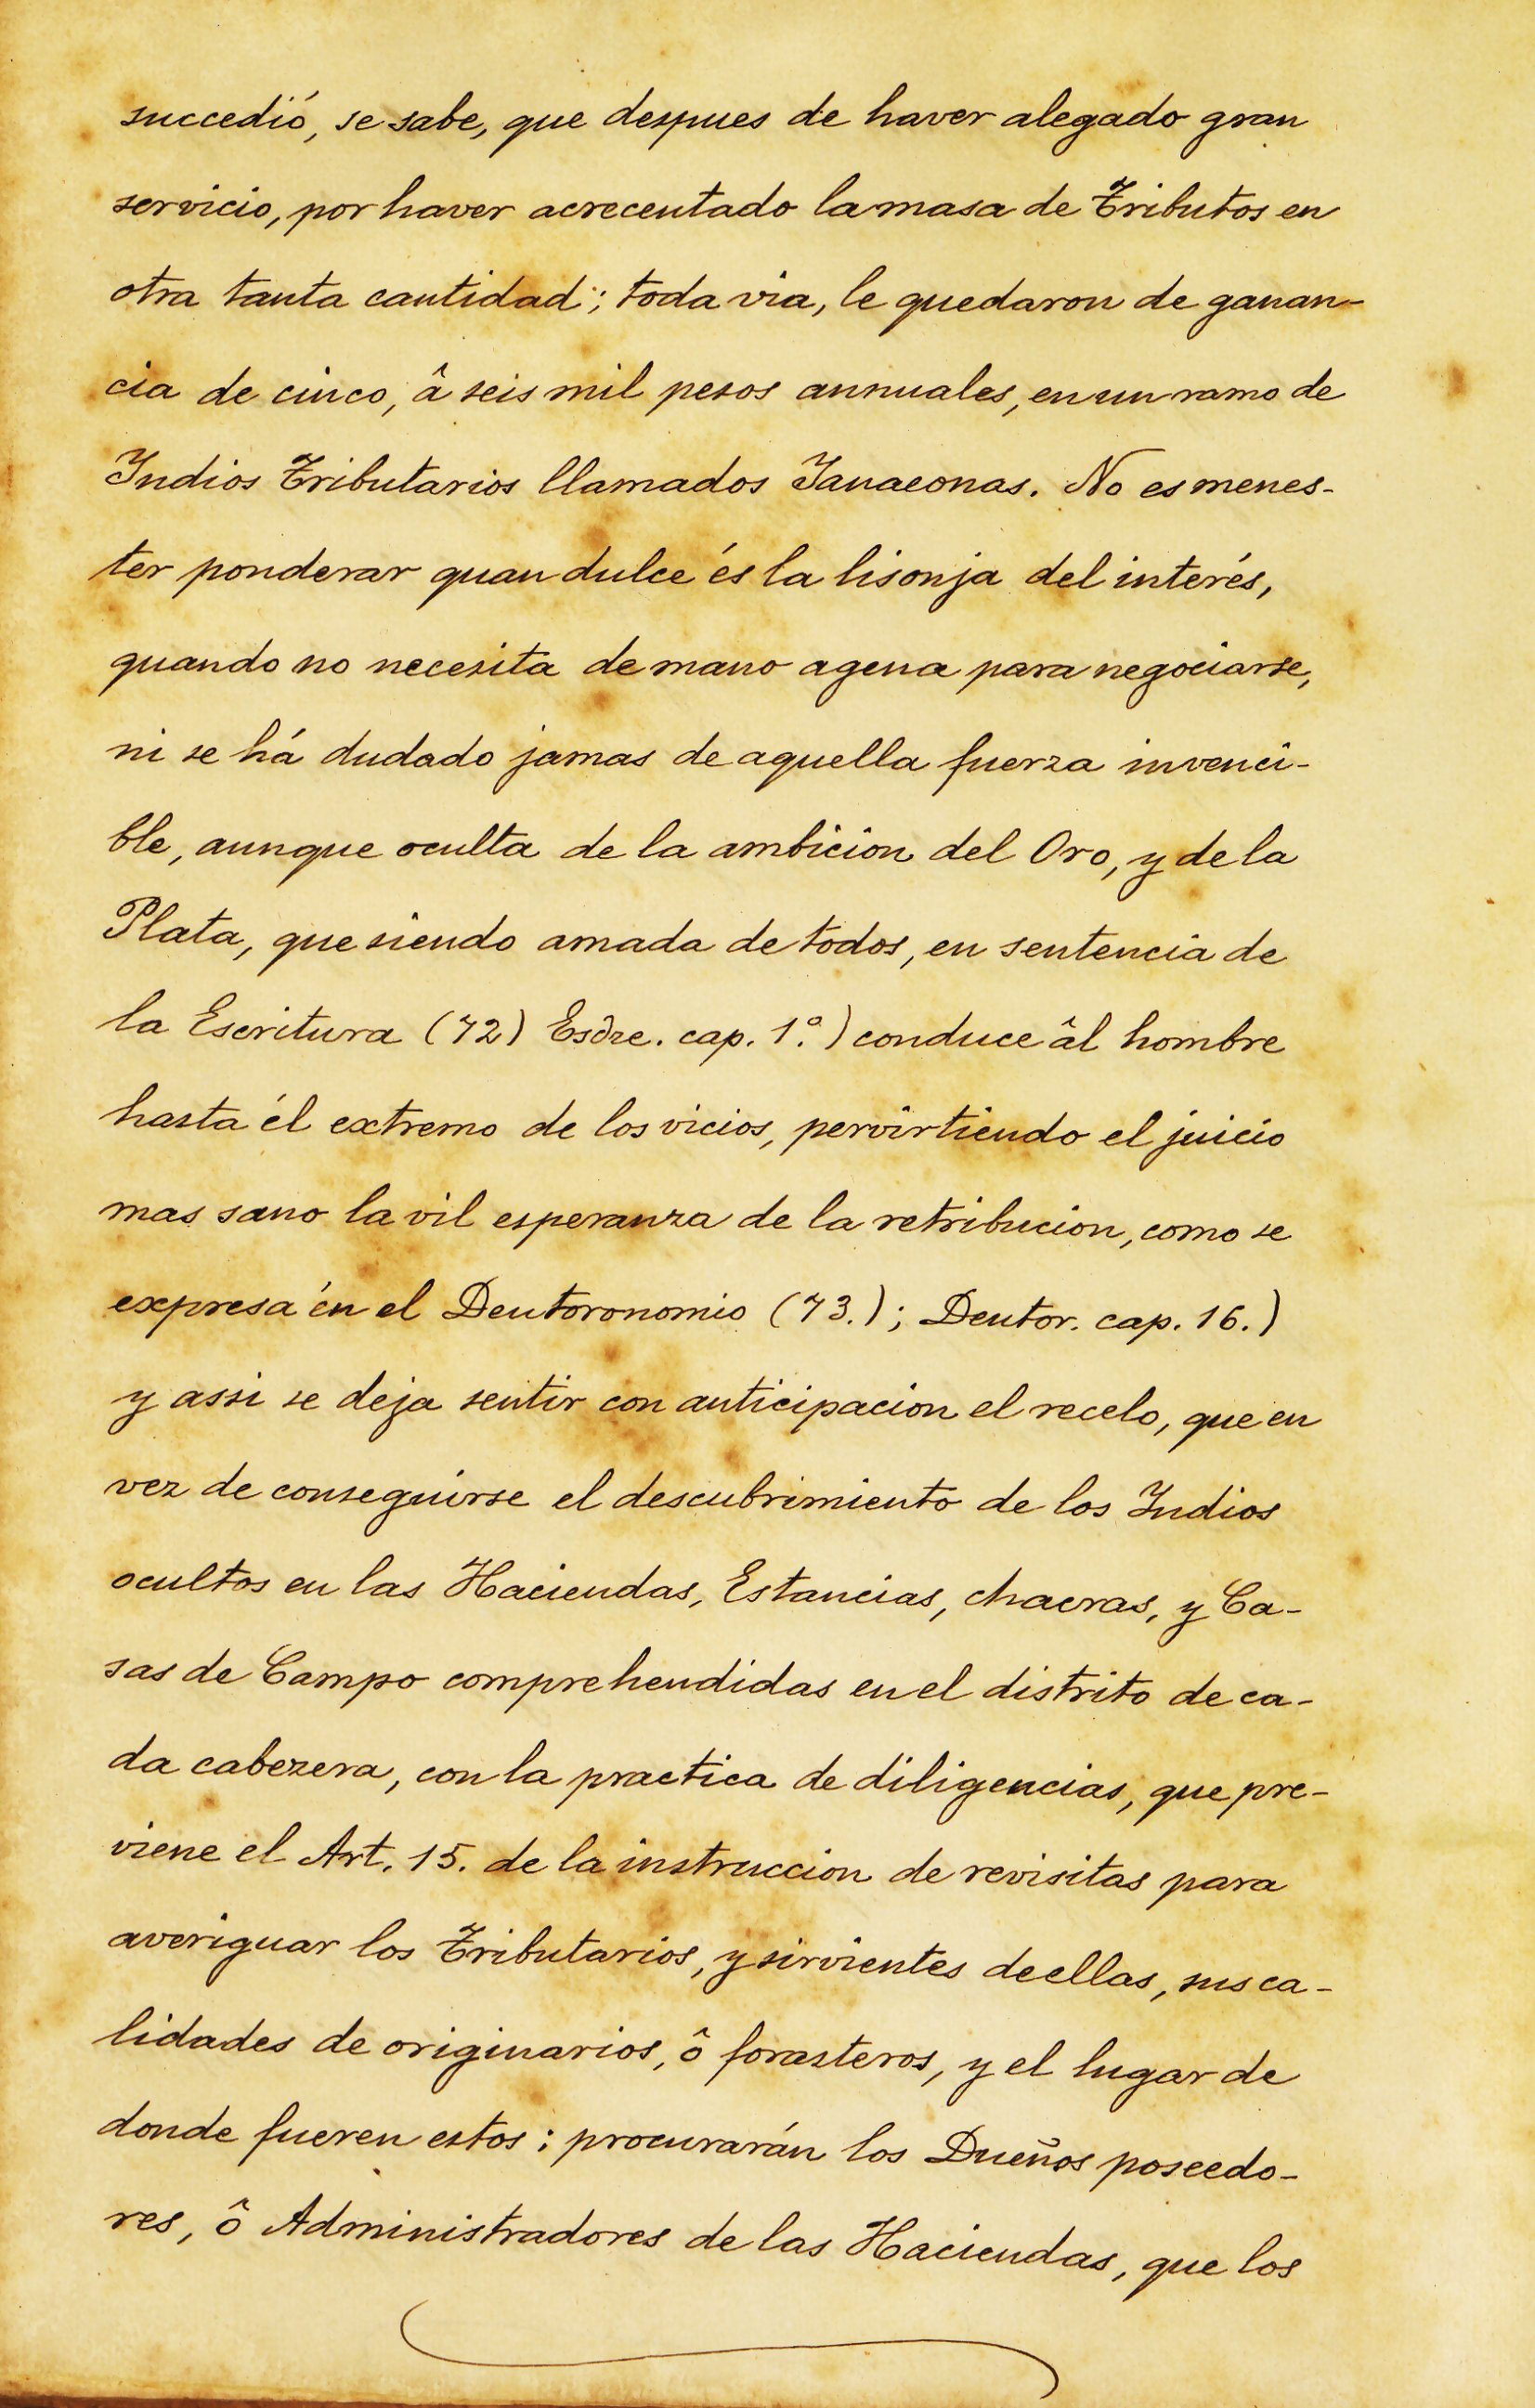 succedió, se sabe, que despues de haver alegado gran
servicio, por haver acrecentado la masa de Tributos en
otra tanta cantidad; toda via, le quedaron de ganan-
cia de cinco, â seis mil pesos annuales, en un ramo de
Indios Tributarios llamados Yanaconas. No es menes-
ter ponderar quan dulce és la lisonja del interés,
quando no necesita de mano agena para negociarse,
ni se há dudado jamas de aquella fuerza invenci-
ble, aunque oculta de la ambicion del Oro, y de la
Plata, que siendo amada de todos, en sentencia de
la Escritura (72) Esdre. cap. 1º.) conduce âl hombre
hasta él extremo de los vicios, pervirtiendo el juicio
mas sano la vil esperanza de la retribucion, como se
expresa én el Deutoronomio (73.); Deutor. cap. 16.)
y assi se deja sentir con anticipacion el recelo, que en
vez de conseguirse el descubrimiento de los Indios
ocultos en las Haciendas, Estancias, chacras, y Ca-
sas de Campo comprehendidas en el distrito de ca-
da cabezera, con la practica de diligencias, que pre-
viene el Art. 15. de la instruccion de revisitas para
averiguar los Tributarios, y sirvientes de ellas, sus ca-
lidades de originarios, ô forasteros, y el lugar de
donde fueren estos: procurarán los Dueños poseedo-
res, ô Administradores de las Haciendas, que los